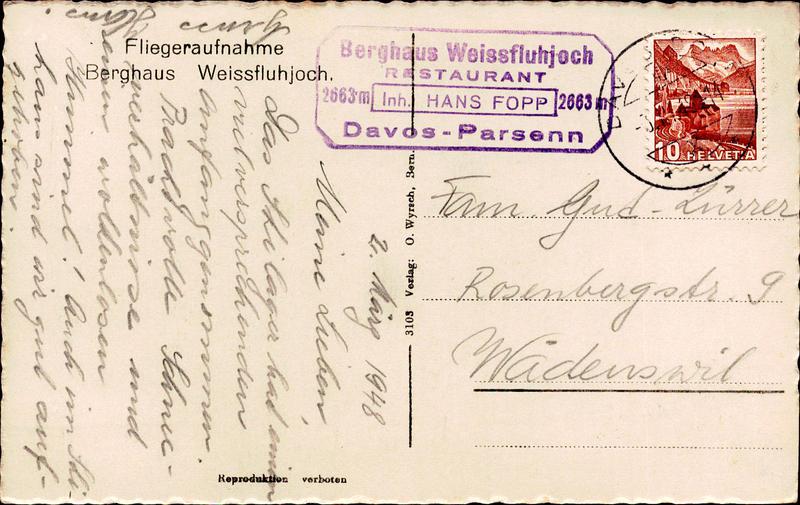 Fliegeraufnahme
Berghaus Weissfluhjoch.
Berghaus Weissfluhjoch
RESTAURANT
2663 m Inh. HANS FOPP 2663 m
Davos-Parsenn
10 HELVETIA
2. März 1948
Meine Lieben,
Das Skilager hat einen
vielversprechenden
Anfang genommen.
Prachtvolle Schnee-
verhältnisse und
einen wolkenlosen
Himmel! Auch im Ski-
haus sind wir gut auf-
gehoben.
3103 Verlag: O. Wyrsch, Bern.
Fam. Gud-Zürrer
Rosenbergstr. 9
Wädenswil
Reproduktion verboten